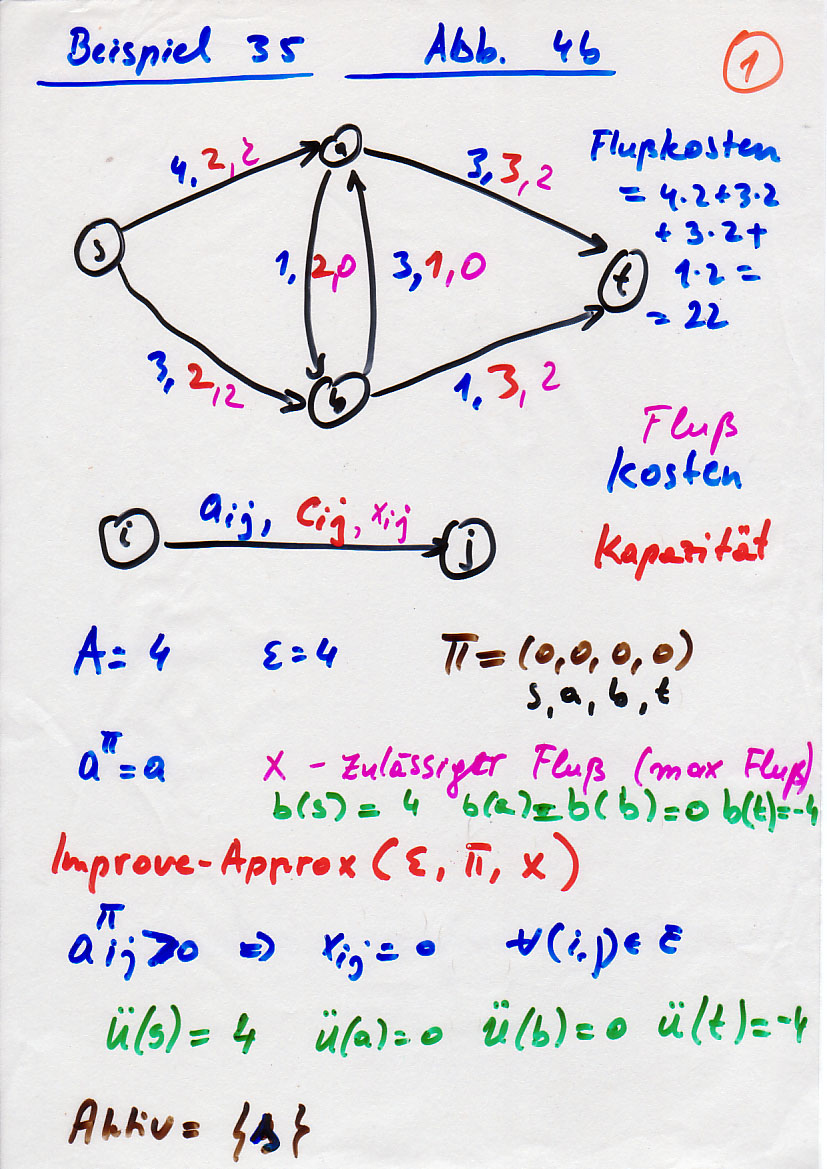 Beispiel 35 Abb. 4b
1
Flußkosten
= 4·2+3·2
+ 3·2+
1·2 =
= 22
4, 2, 2
a
3, 3, 2
s
1, 2, 0
3, 1, 0
t
3, 2, 2
b
1, 3, 2
Fluß
kosten
Kapazität
i
aij, cij, xij
j
A = 4 ε = 4 π = (0, 0, 0, 0)
s, a, b, t
a^π = a x - zulässiger Fluß (max Fluß)
b(s) = 4 b(a) = b(b) = 0 b(t) = -4
Improve-Approx (ε, π, x)
a^π ij > 0 ⇒ xij = 0 ∀(i,j) ∈ E
ü(s) = 4 ü(a) = 0 ü(b) = 0 ü(t) = -4
Aktiv = {s}